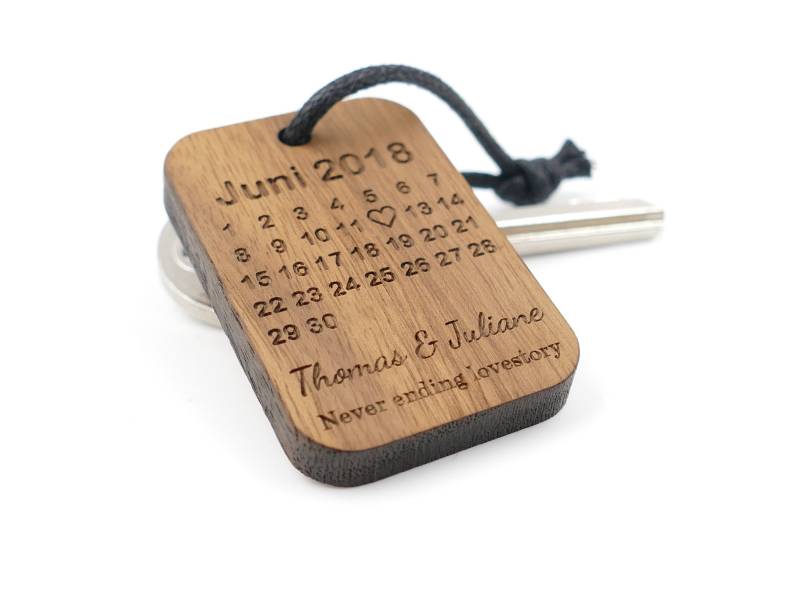 Juni 2018
1 2 3 4 5 6 7
8 9 10 11 ♡ 13 14
15 16 17 18 19 20 21
22 23 24 25 26 27 28
29 30
Thomas & Juliane
Never ending lovestory